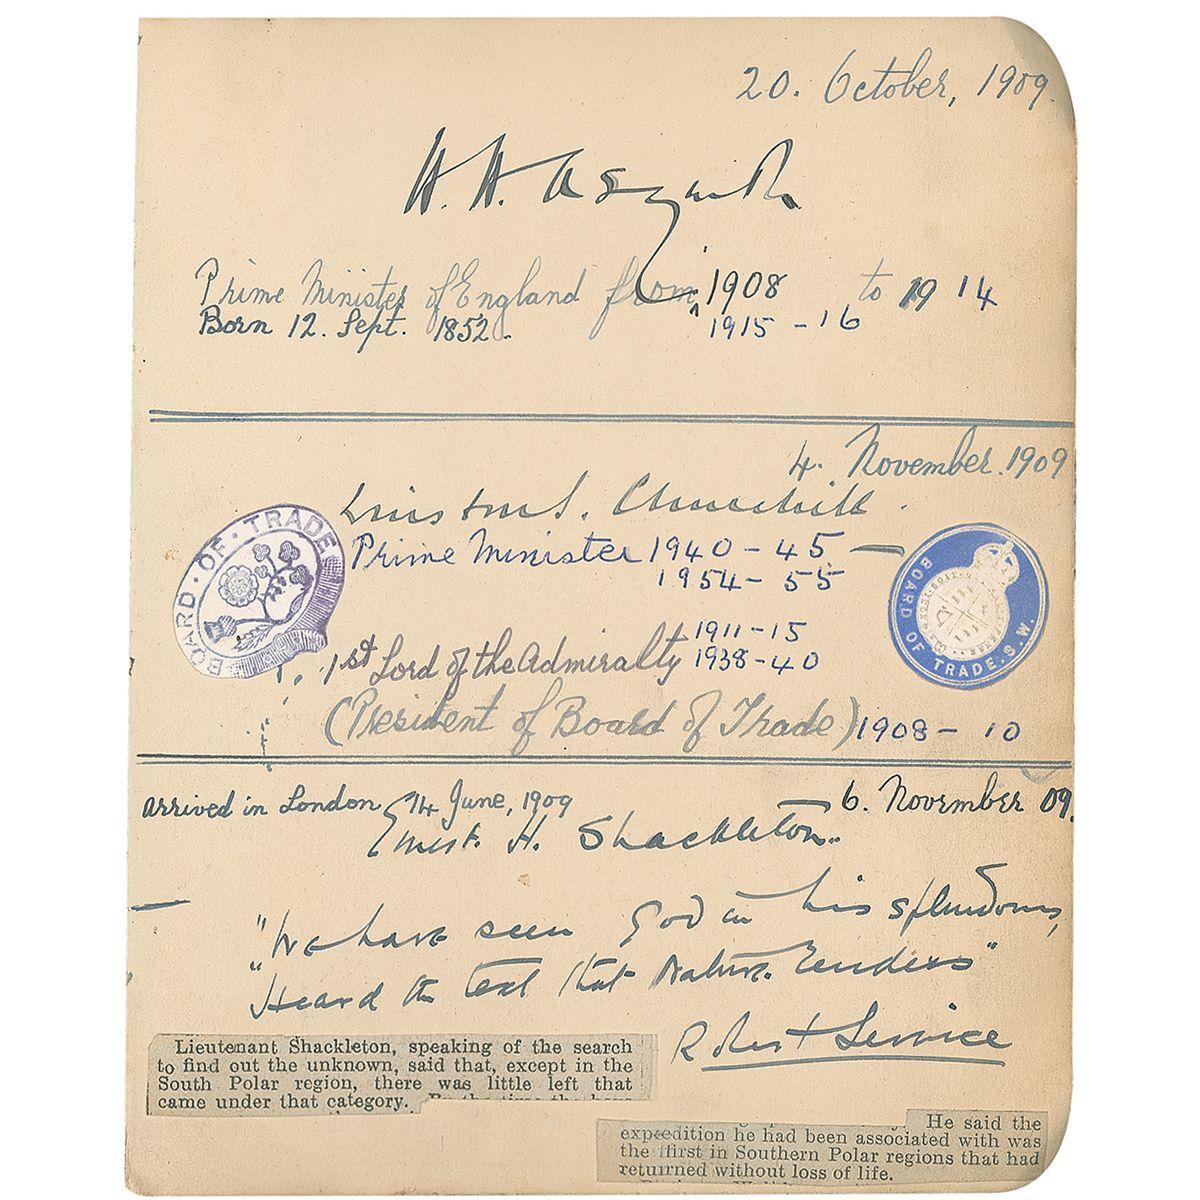 20. October, 1909.
H. H. Asquith
Prime Minister of England from 1908 to 1914
Born 12. Sept. 1852. ^ 1915 - 16
4. November. 1909
Winston S. Churchill.
BOARD · OF · TRADE
Prime Minister 1940 - 45 —
1954 - 55
BOARD OF TRADE. S.W.
1911 - 15
1st Lord of the Admiralty 1938 - 40
(President of Board of Trade) 1908 - 10
arrived in London 14 June, 1909
6. November 09.
Ernest. H. Shackleton..
"We have seen God in his splendours,
"Heard the text that Nature. renders"
Robert Service
Lieutenant Shackleton, speaking of the search
to find out the unknown, said that, except in the
South Polar region, there was little left that
came under that category. By the time the
He said the
expedition he had been associated with was
the first in Southern Polar regions that had
returned without loss of life.